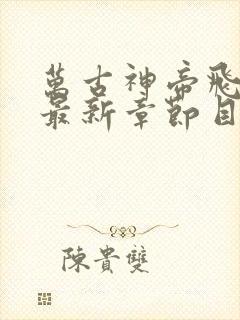 萬古神帝飛
最新章節目
陳貴雙